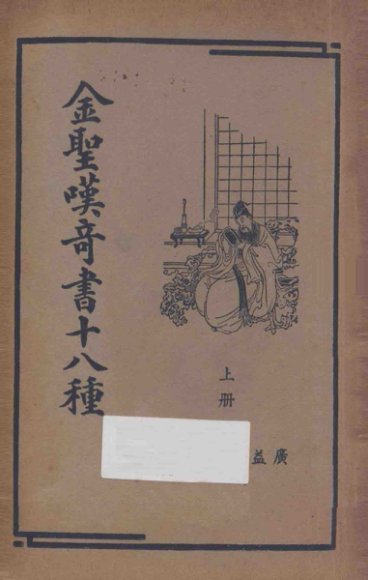 金聖嘆奇書十八種
上册
廣益